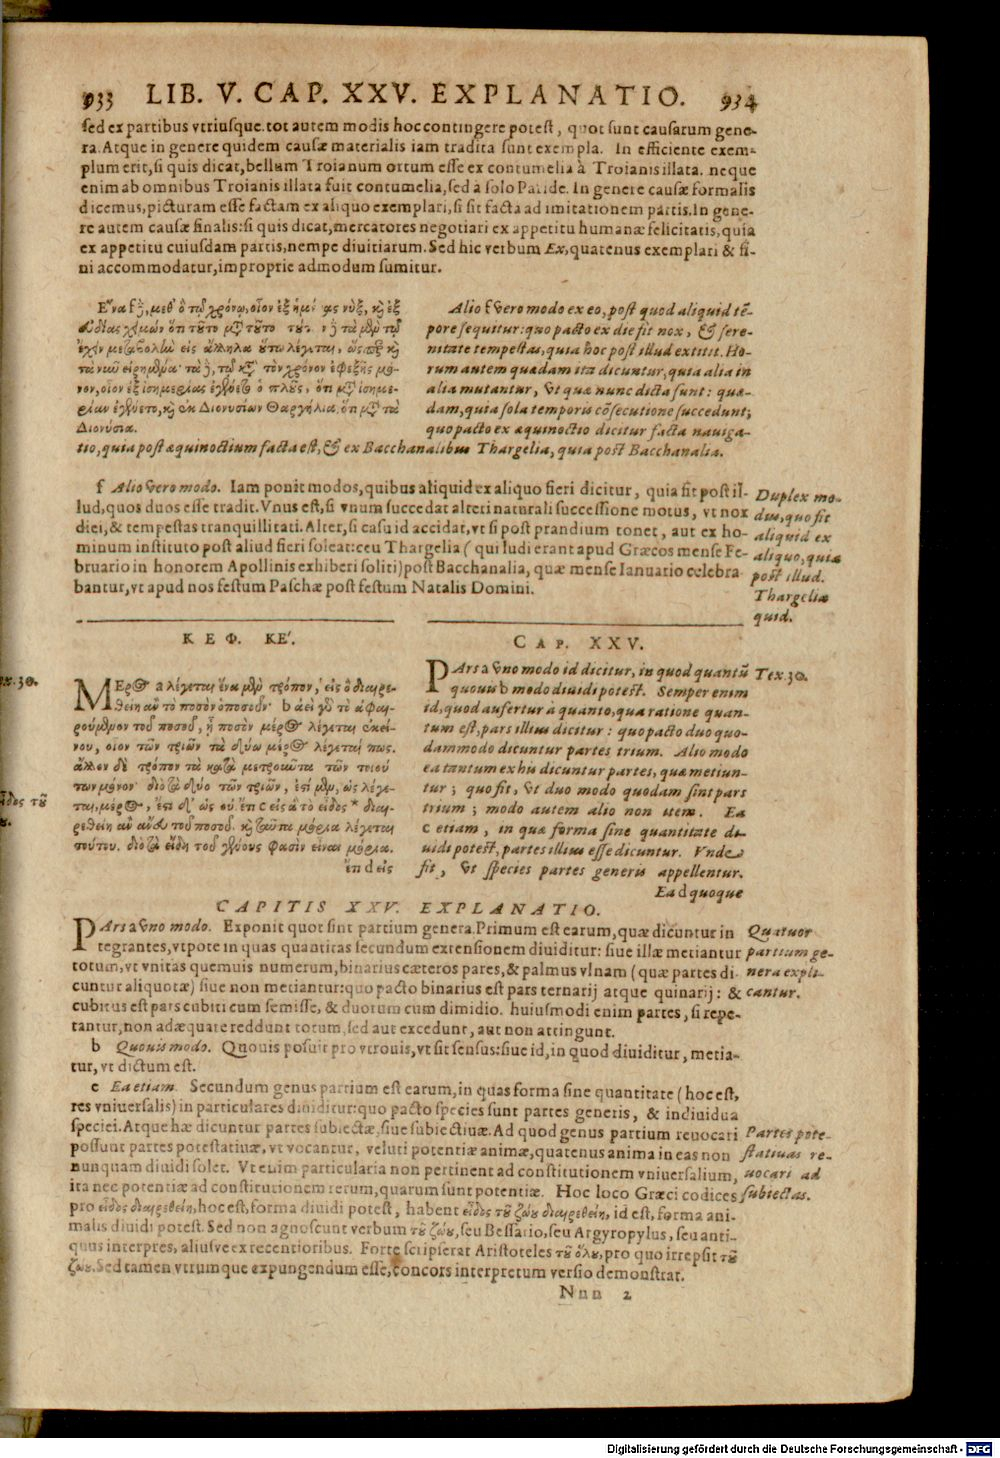 933 LIB. V. CAP. XXV. EXPLANATIO. 934
sed ex partibus vtriusque. tot autem modis hoc contingere potest, quot sunt causarum gene-
ra. Atque in genere quidem causæ materialis iam tradita sunt exempla. In efficiente exem-
plum erit, si quis dicat, bellum Troianum ortum esse ex contumelia à Troianis illata. neque
enim ab omnibus Troianis illata fuit contumelia, sed à solo Paride. In genere causæ formalis
dicemus, picturam esse factam ex aliquo exemplari, si sit facta ad imitationem partis. In gene-
re autem causæ finalis: si quis dicat, mercatores negotiari ex appetitu humanæ felicitatis, quia
ex appetitu cuiusdam partis, nempe diuitiarum. Sed hic verbum Ex, quatenus exemplari & fi-
ni accommodatur, improprie admodum sumitur.
χρόνῳ, οἷον ἐξ
τοῦτο μετὰ τοῦτο
εἰς ἄλληλα οὕτω λέγεται, ὥσπερ καὶ
τὰ νῦν εἰρημένα· τὰ δὲ, τῷ κατὰ τὸν χρόνον ἐφεξῆς μό-
νον, οἷον ἐξ ἰσημερίας ἐγένετο ὁ πλοῦς, ὅτι μετ' ἰσημε-
ρίαν ἐγένετο, καὶ ἐκ Διονυσίων Θαργήλια, ὅτι μετὰ τὰ
Διονύσια.
Alio f vero modo ex eo, post quod aliquid tẽ-
pore sequitur: quo pacto ex die fit nox, & ex sere-
nitate tempestas, quia hoc post illud extitit. Ho-
rum autem quædam ita dicuntur, quia alia in
alia mutantur, vt quæ nunc dicta sunt: quæ-
dam, quia sola temporis cõsecutione succedunt;
quo pacto ex æquinoctio dicitur facta nauiga-
tio, quia post æquinoctium facta est, & ex Bacchanalibus Thargelia, quia post Bacchanalia.
f Alio vero modo. Iam ponit modos, quibus aliquid ex aliquo fieri dicitur, quia fit post il-
lud, quos duos esse tradit. Vnus est, si vnum succedat alteri naturali successione motus, vt nox
diei, & tempestas tranquillitati. Alter, si casu id accidat, vt si post prandium tonet, aut ex ho-
minum instituto post aliud fieri soleat: ceu Thargelia (qui ludi erant apud Græcos mense Fe-
bruario in honorem Apollinis exhiberi soliti) post Bacchanalia, quæ mense Ianuario celebra
bantur, vt apud nos festum Paschæ post festum Natalis Domini.
Duplex mo-
dus, quo fit
aliquid ex
aliquo, quia
post illud.
Thargelia
quid.
ΚΕΦ. ΚΕ'.
ΜΕρος a λέγεται ἕνα μὲν τρόπον, εἰς ὃ διαιρε-
θείη ἂν τὸ ποσὸν ὁποσοῦν· b ἀεὶ γὰρ τὸ ἀφαι-
ρούμενον τοῦ ποσοῦ, ᾗ ποσὸν μέρος λέγεται ἐκεί-
νου, οἷον τῶν τριῶν τὰ δύο μέρος λέγεταί πως.
ἄλλον δὲ τρόπον τὰ καταμετροῦντα τῶν τοιού
των μόνον· διὸ τὰ δύο τῶν τριῶν, ἔστι μὲν, ὡς λέγε-
ται, μέρος, ἔστι δ' ὡς οὔ ἔτι c εἰς ἃ τὸ εἶδος * διαι-
ρεθείη ἂν ἄνευ τοῦ ποσοῦ. καὶ ταῦτα μόρια λέγεται
τούτου. διὸ τὰ εἴδη τοῦ γένους φασὶν εἶναι μόρια.
ἔτι d εἰς
εἶδος τοῦ
CAP. XXV.
PArs a vno modo id dicitur, in quod quantũ
quouis b modo diuidi potest. Semper enim
id, quod aufertur à quanto, qua ratione quan-
tum est, pars illius dicitur: quo pacto duo quo-
dammodo dicuntur partes trium. Alio modo
ea tantum ex his dicuntur partes, quæ metiun-
tur; quo fit, vt duo modo quodam sint pars
trium; modo autem alio non item. Ea
c etiam, in quæ forma sine quantitate di-
uidi potest, partes illius esse dicuntur. Vnde
fit, vt species partes generis appellentur.
Ea d quoque
Tex. 30.
CAPITIS XXV. EXPLANATIO.
PArs a vno modo. Exponit quot sint partium genera. Primum est earum, quæ dicuntur in
tegrantes, vtpote in quas quantitas secundum extensionem diuiditur: siue illæ metiantur
totum, vt vnitas quemuis numerum, binarius cæteros pares, & palmus vlnam (quæ partes di-
cuntur aliquotæ) siue non metiantur: quo pacto binarius est pars ternarij atque quinarij: &
cubitus est pars cubiti cum semisse, & duorum cum dimidio. huiusmodi enim partes, si repe-
tantur, non adæquate reddunt totum, sed aut excedunt, aut non attingunt.
Quatuor
partium ge-
nera expli-
cantur.
b Quouis modo. Quouis posuit pro vtrouis, vt sit sensus: siue id, in quod diuiditur, metia-
tur, vt dictum est.
c Ea etiam. Secundum genus partium est earum, in quas forma sine quantitate (hoc est,
res vniuersalis) in particulares diuiditur: quo pacto species sunt partes generis, & indiuidua
speciei. Atque hæ dicuntur partes subiectæ, siue subiectiuæ. Ad quod genus partium reuocari
possunt partes potestatiuæ, vt vocantur, veluti potentiæ animæ, quatenus anima in eas non
nunquam diuidi solet. Vt enim particularia non pertinent ad constitutionem vniuersalium,
ita nec potentiæ ad constitutionem rerum, quarum sunt potentiæ. Hoc loco Græci codices
pro εἶδος διαιρεθείη, hoc est, forma diuidi potest, habent εἶδος τοῦ ζώου διαιρεθείη, id est, forma ani-
malis diuidi potest. Sed non agnoscunt verbum τοῦ ζώου, seu Bessario, seu Argyropylus, seu anti-
quus interpres, aliusve ex recentioribus. Forte scripserat Aristoteles τοῦ ὅλου, pro quo irrepsit τοῦ
ζώου. Sed tamen vtrumque expungendum esse, concors interpretum versio demonstrat.
Partes pote-
statiuas re-
uocari ad
subiectas.
Nnn 2
Digitalisierung gefördert durch die Deutsche Forschungsgemeinschaft - DFG